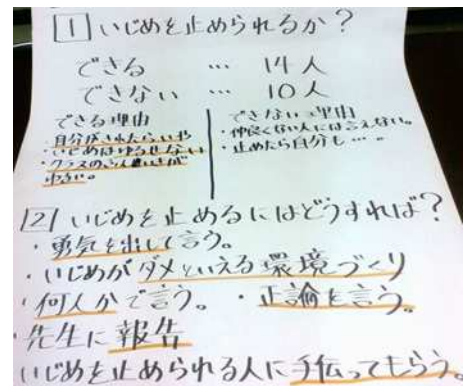 1 いじめを止められるか？
できる … 14人
できない … 10人
できる理由
・自分がされたらいや
・いじめはゆるせない
・クラスのふんいきが
わるい。
できない理由
・仲良くない人には言えない。
・止めたら自分も…。
2 いじめを止めるにはどうすれば？
・勇気を出して言う。
・いじめがダメといえる環境づくり
・何人かで言う。 ・正論を言う。
・先生に報告
いじめを止められる人に手伝ってもらう。